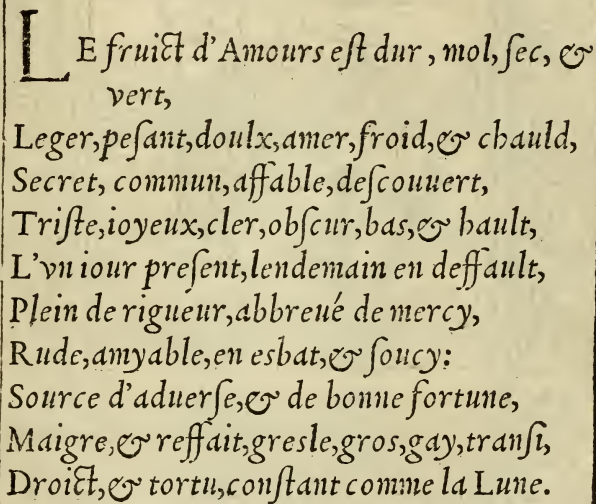 LE fruict d'Amours eſt dur, mol, ſec, &
vert,
Leger, peſant, doulx, amer, froid, & chauld,
Secret, commun, affable, deſcouuert,
Triſte, ioyeux, cler, obſcur, bas, & hault,
L'vn iour preſent, lendemain en deffault,
Plein de rigueur, abbreué de mercy,
Rude, amyable, en esbat, & ſoucy:
Source d'aduerſe, & de bonne fortune,
Maigre, & reffait, gresle, gros, gay, tranſi,
Droict, & tortu, conſtant comme la Lune.